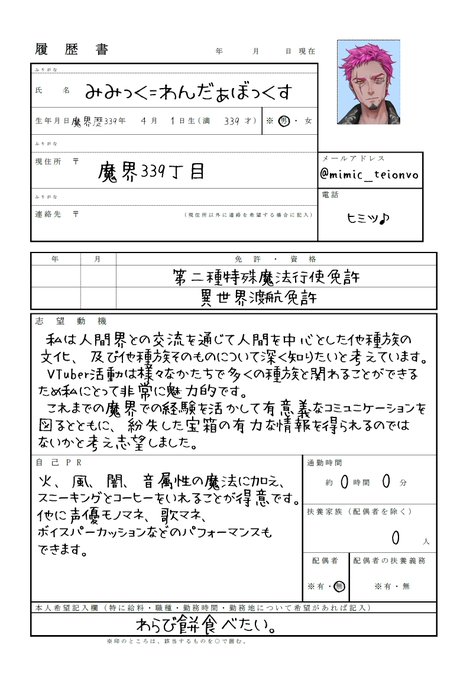 履歴書 年 月 日現在
ふりがな
氏 名 みみっく=わんだぁぼっくす
生年月日 魔界歴339年 4月 1日生(満 339才) ※ 男・女
ふりがな
現住所 〒 魔界339丁目
メールアドレス
@mimic_teionvo
ふりがな
連絡先 〒 (現住所以外に連絡を希望する場合に記入)
電話
ヒミツ♪
年 月 免許・資格
第二種特殊魔法行使免許
異世界渡航免許
志望動機
私は人間界との交流を通じて人間を中心とした他種族の
文化、及び他種族そのものについて深く知りたいと考えています。
VTuber活動は様々なかたちで多くの種族と関れることができる
ため私にとって非常に魅力的です。
これまでの魔界での経験を活かして有意義なコミュニケーションを
図るとともに、紛失した宝箱の有力な情報を得られるのでは
ないかと考え志望しました。
自己PR
火、風、闇、音属性の魔法に加え、
スニーキングとコーヒーをいれることが得意です。
他に声優モノマネ、歌マネ、
ボイスパーカッションなどのパフォーマンスも
できます。
通勤時間
約 0 時間 0 分
扶養家族(配偶者を除く)
0 人
配偶者 配偶者の扶養義務
※有・無 ※有・無
本人希望記入欄(特に給料・職種・勤務時間・勤務地について希望があれば記入)
わらび餅食べたい。
※印のところは、該当するものを○で囲む。